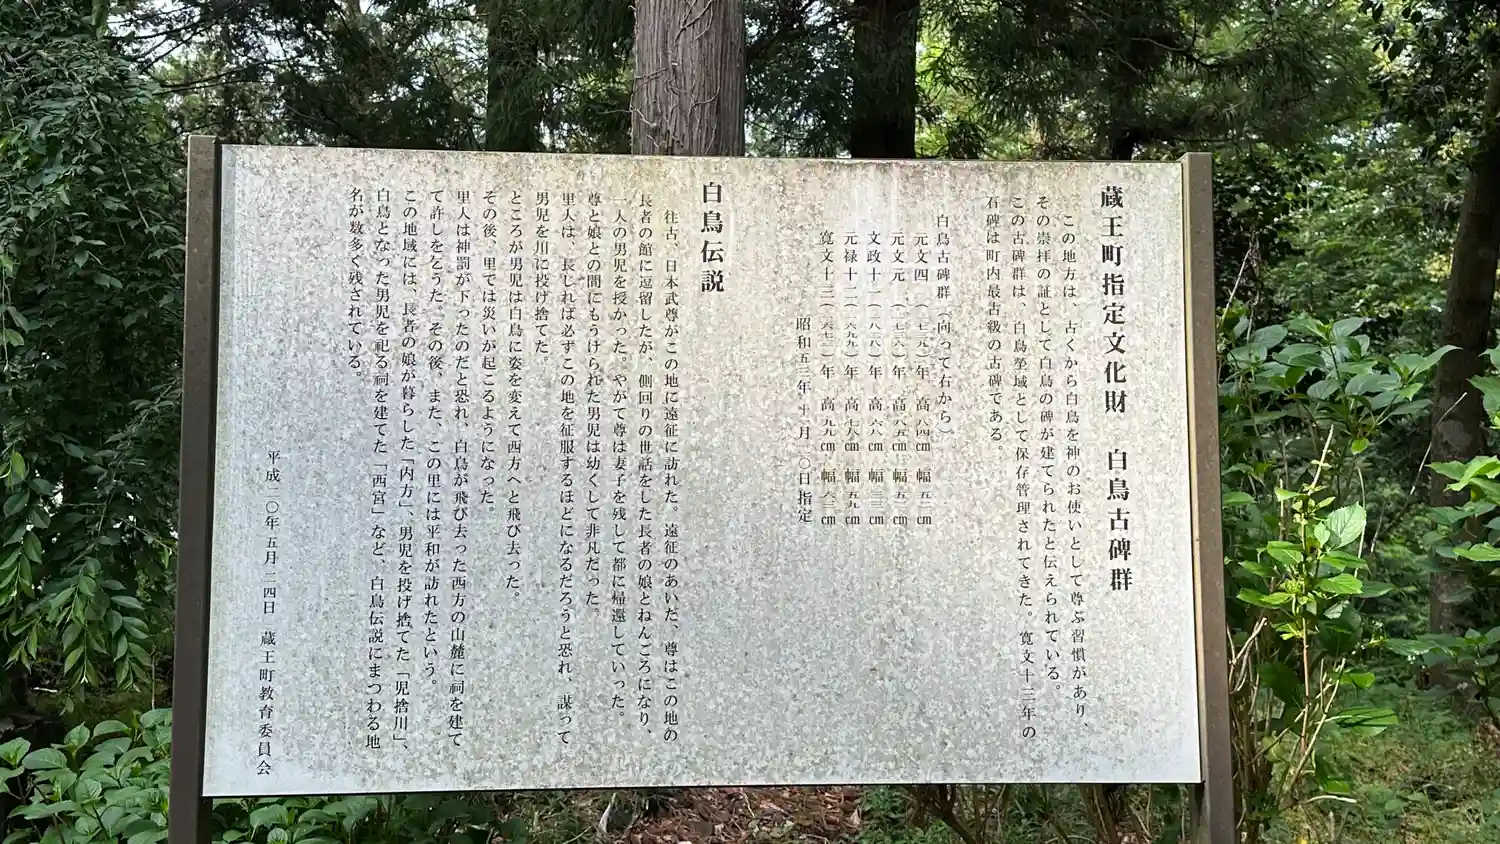 蔵王町指定文化財　白鳥古碑群
この地方は、古くから白鳥を神のお使いとして尊ぶ習慣があり、
その崇拝の証として白鳥の碑が建てられたと伝えられている。
この古碑群は、白鳥塋域として保存管理されてきた。寛文十三年の
石碑は町内最古級の古碑である。
白鳥古碑群（向って右から）
元文四　（一七三九）年　高八四㎝　幅五二㎝
元文元　（一七三六）年　高八五㎝　幅五一㎝
文政十一（一八二八）年　高六八㎝　幅三三㎝
元禄十二（一六九九）年　高七八㎝　幅五九㎝
寛文十三（一六七三）年　高九九㎝　幅六三㎝
昭和五三年 十月一〇日指定
白鳥伝説
往古、日本武尊がこの地に遠征に訪れた。遠征のあいだ、尊はこの地の
長者の館に逗留したが、側回りの世話をした長者の娘とねんごろになり、
一人の男児を授かった。やがて尊は妻子を残して都に帰還していった。
尊と娘との間にもうけられた男児は幼くして非凡だった。
里人は、長じれば必ずこの地を征服するほどになるだろうと恐れ、謀って
男児を川に投げ捨てた。
ところが男児は白鳥に姿を変えて西方へと飛び去った。
その後、里では災いが起こるようになった。
里人は神罰が下ったのだと恐れ、白鳥が飛び去った西方の山麓に祠を建て
て許しを乞うた。その後、また、この里には平和が訪れたという。
この地域には、長者の娘が暮らした「内方」、男児を投げ捨てた「児捨川」、
白鳥となった男児を祀る祠を建てた「西宮」など、白鳥伝説にまつわる地
名が数多く残されている。
平成二〇年五月二四日　蔵王町教育委員会